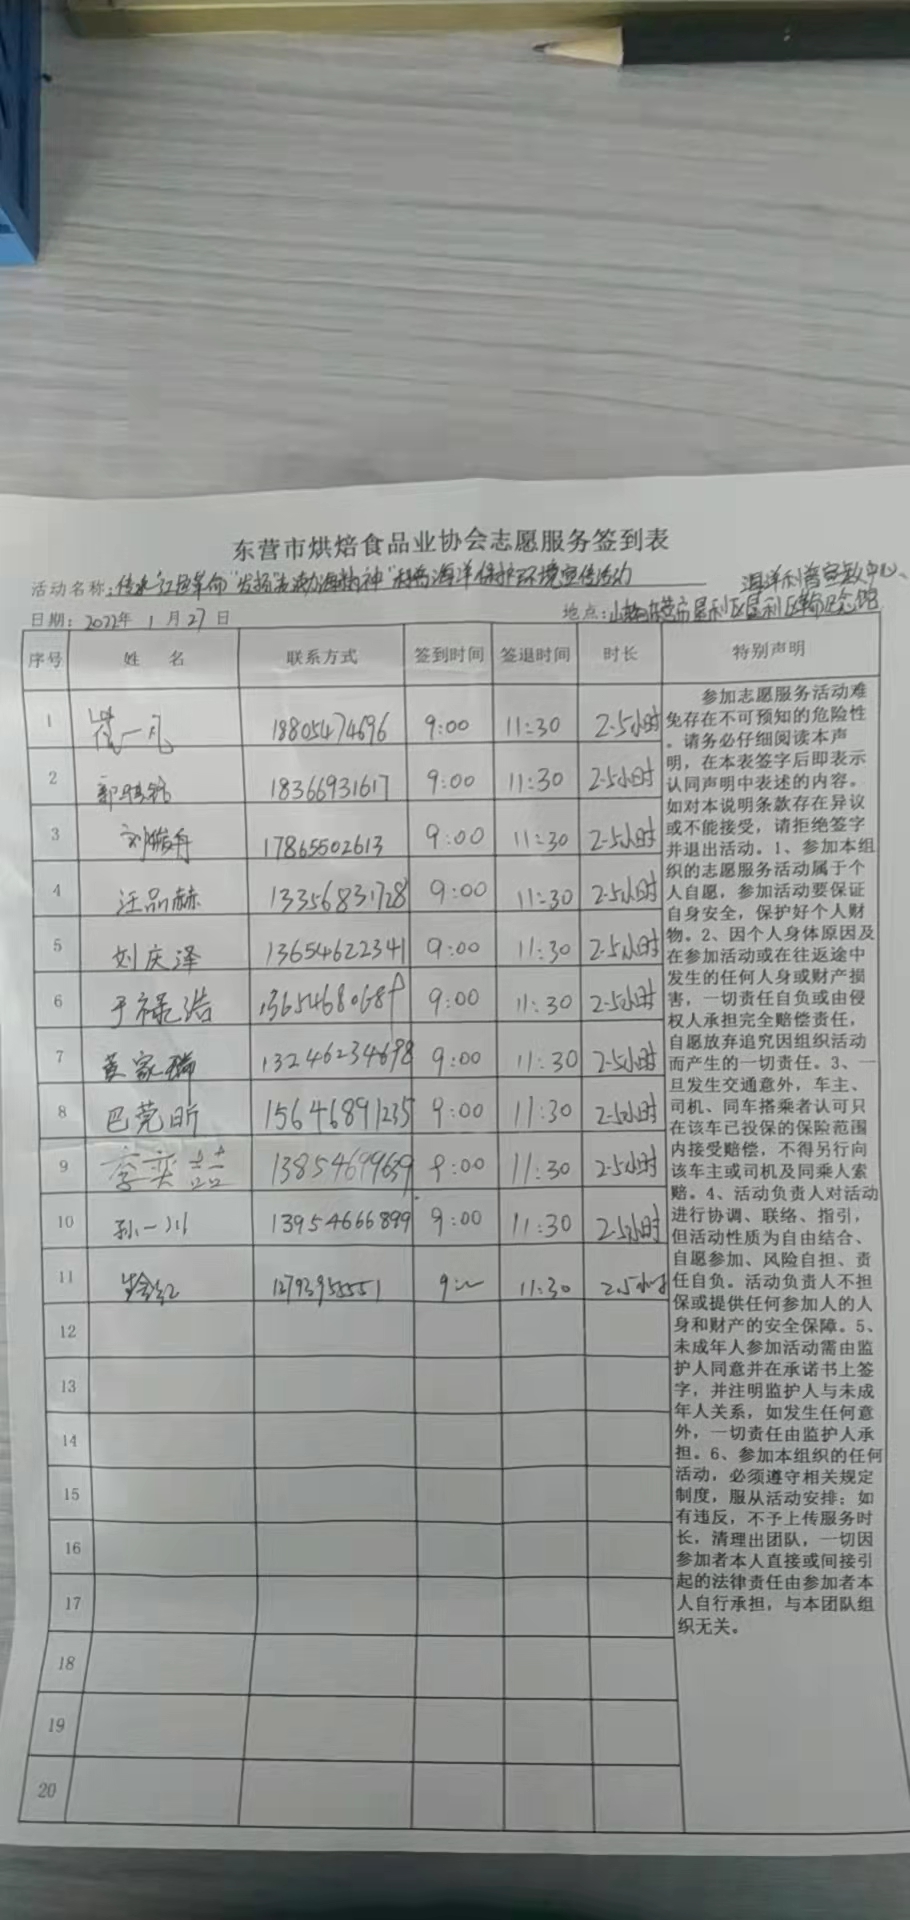 东营市烘焙食品业协会志愿服务签到表
活动名称：传承"红色革命"发扬渤海精神"科普海洋保护环境宣传活动
海洋科普宣教中心、
日期：2022年 1 月 27 日
地点：山东东营市垦利区垦利区革命纪念馆
序号 姓 名 联系方式 签到时间 签退时间 时长 特别声明
1 崔一凡 18805474696 9:00 11:30 2.5小时
2 18366931617 9:00 11:30 2.5小时
3 刘舟 17865502613 9:00 11:30 2.5小时
4 汪品赫 13356831728 9:00 11:30 2.5小时
5 刘庆泽 13654622341 9:00 11:30 2.5小时
6 于禄浩 9:00 11:30 2.5小时
7 黄家瑞 13246234698 9:00 11:30 2.5小时
8 巴莞昕 15646891235 9:00 11:30 2.5小时
9 李奕喆 9:00 11:30 2.5小时
10 孙一川 13954666899 9:00 11:30 2.5小时
11 11:30 2.5小时
12
13
14
15
16
17
18
19
20
参加志愿服务活动难
免存在不可预知的危险性
。请务必仔细阅读本声
明，在本表签字后即表示
认同声明中表述的内容。
如对本说明条款存在异议
或不能接受，请拒绝签字
并退出活动。1、参加本组
织的志愿服务活动属于个
人自愿，参加活动要保证
自身安全，保护好个人财
物。2、因个人身体原因及
在参加活动或在往返途中
发生的任何人身或财产损
害，一切责任自负或由侵
权人承担完全赔偿责任，
自愿放弃追究因组织活动
而产生的一切责任。3、一
旦发生交通意外，车主、
司机、同车搭乘者认可只
在该车已投保的保险范围
内接受赔偿，不得另行向
该车主或司机及同乘人索
赔。4、活动负责人对活动
进行协调、联络、指引，
但活动性质为自由结合、
自愿参加、风险自担、责
任自负。活动负责人不担
保或提供任何参加人的人
身和财产的安全保障。5、
未成年人参加活动需由监
护人同意并在承诺书上签
字，并注明监护人与未成
年人关系，如发生任何意
外，一切责任由监护人承
担。6、参加本组织的任何
活动，必须遵守相关规定
制度，服从活动安排；如
有违反，不予上传服务时
长，清理出团队，一切因
参加者本人直接或间接引
起的法律责任由参加者本
人自行承担，与本团队组
织无关。